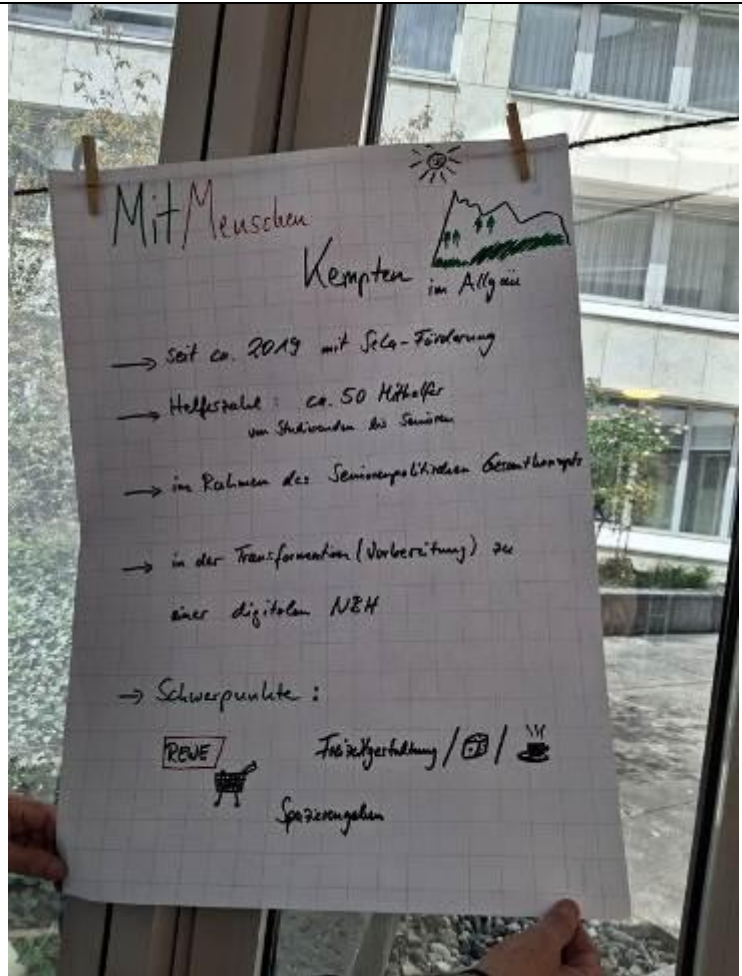 MitMenschen
Kempten im Allgäu
→ seit ca. 2019 mit SeLA-Förderung
→ Helferzahl: ca. 50 Mithelfer
von Studierenden bis Senioren
→ im Rahmen des Seniorenpolitischen Gesamtkonzepts
→ in der Transformation (Vorbereitung) zu
einer digitalen NBH
→ Schwerpunkte:
REWE Freizeitgestaltung / /
Spazierengehen